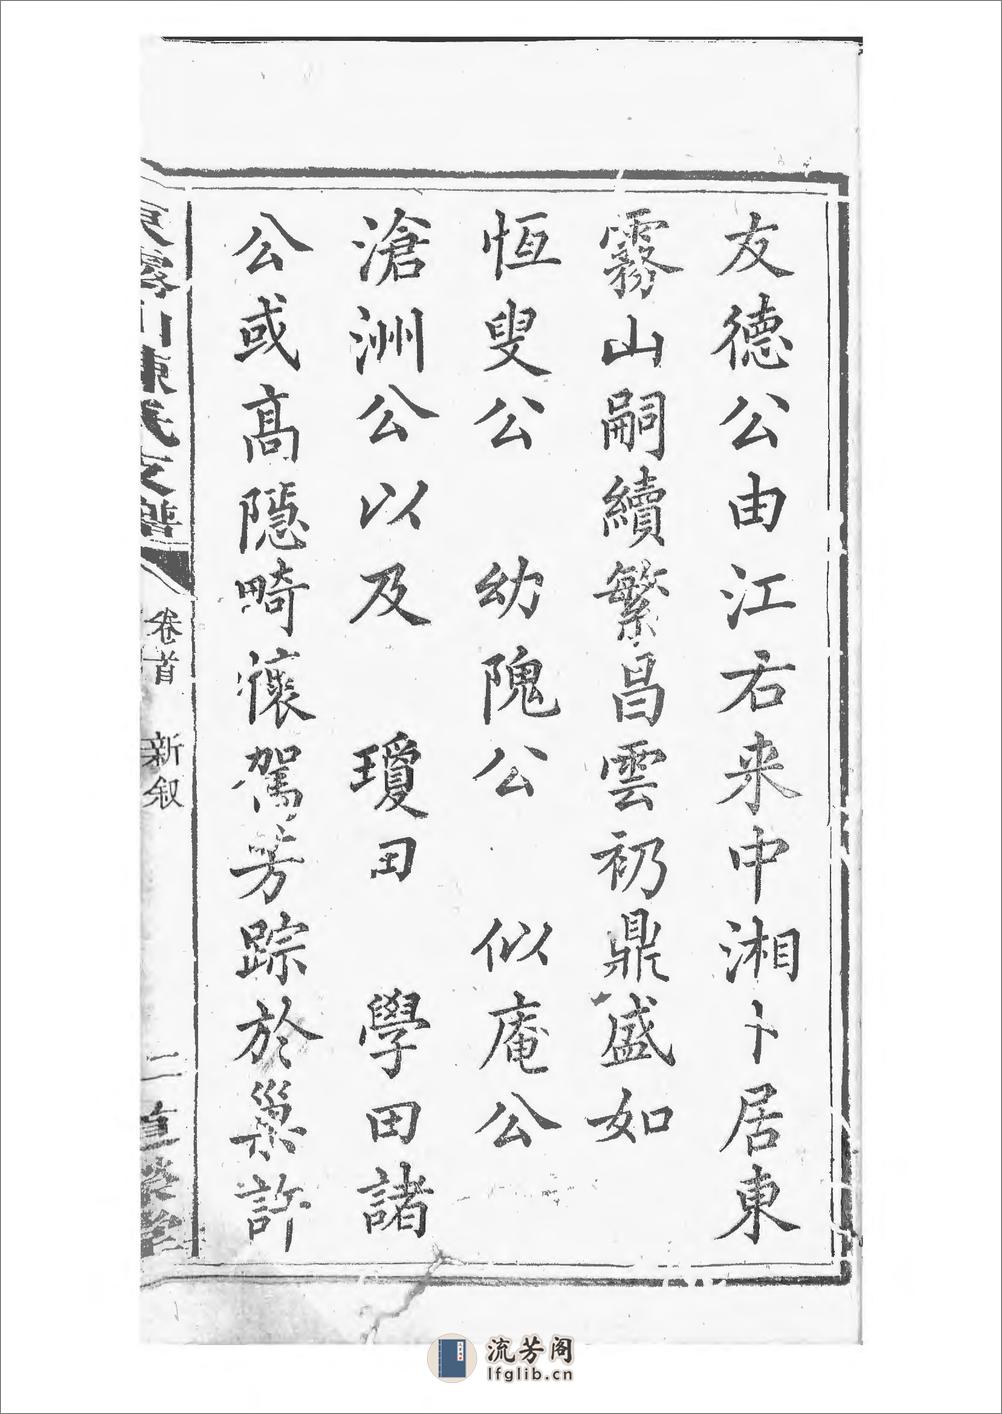 友德公由江右来中湘卜居東
霧山嗣續繁昌雲礽鼎盛如
恆叟公 幼隗公 似庵公
滄洲公以及 瓊田 學田諸
公或高隱畸懷駕芳踪於巢許
東霧山陳氏支譜
卷首 新叙
二
流芳阁
lfglib.cn